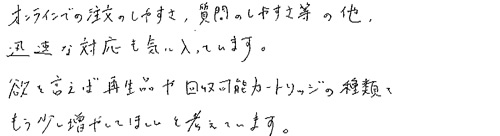 オンラインでの注文のしやすさ，質問のしやすさ等の他，
迅速な対応も気に入っています。
欲を言えば再生品や回収可能カートリッジの種類を
もう少し増やしてほしいと考えています。